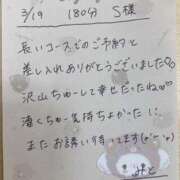 3/19 180分 S様
長いコースでのご予約と
差し入れありがとうございました♡
沢山ちゅーして幸せだったね♡
凄くちゅー気持ちよかった♡
またお誘い待ってます